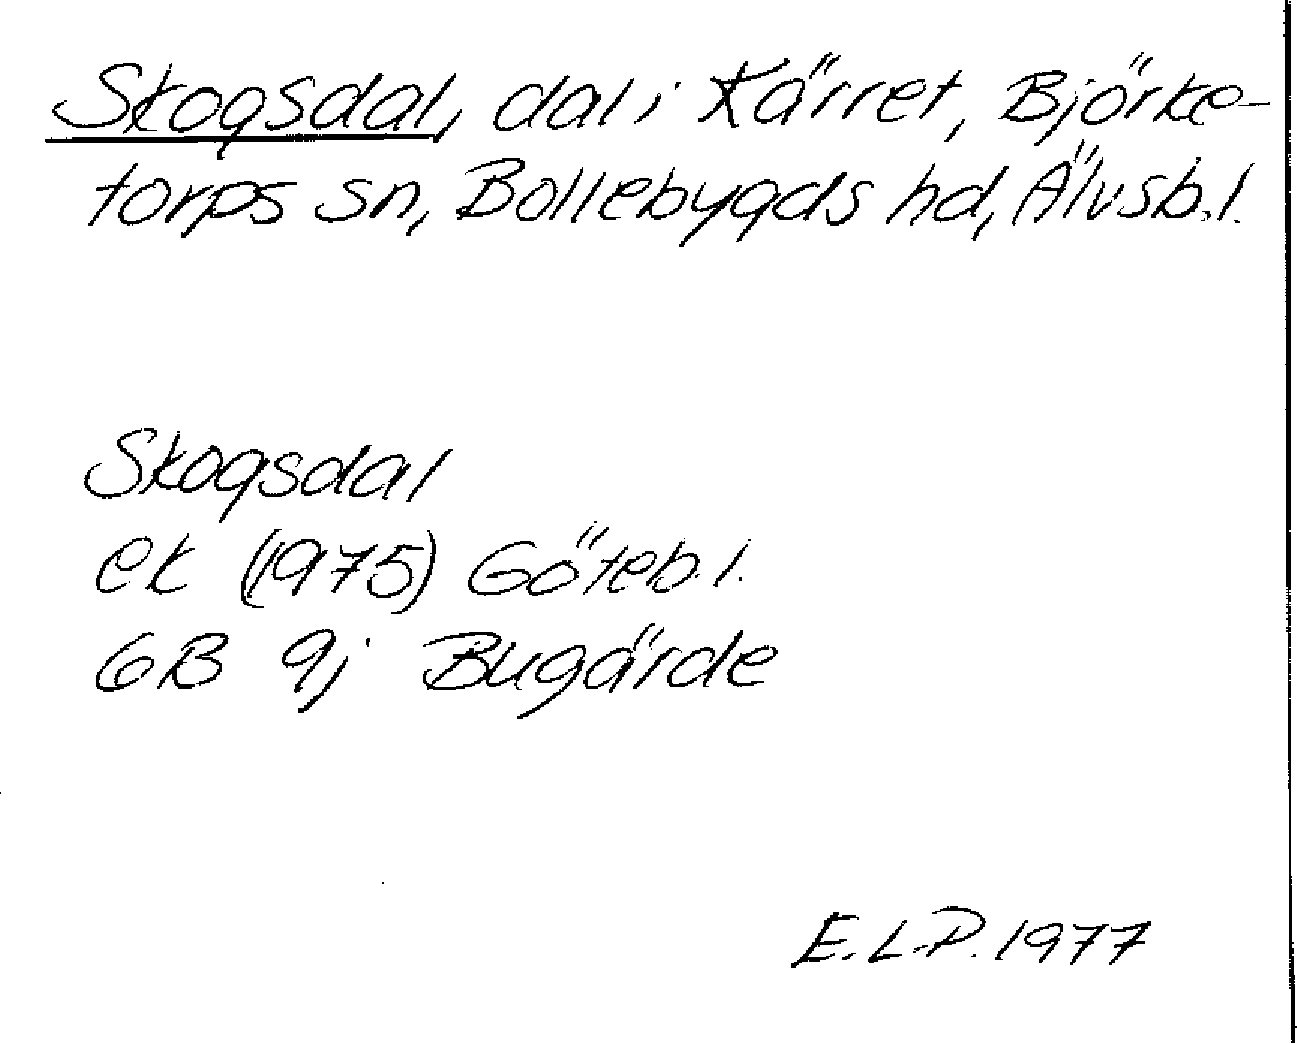 Skogsdal, dal i Kärret, Björke-
torps sn, Bollebygds hd, Älvsb.l.
Skogsdal
ek (1975) Göteb.l.
6B 9j Bugärde
E.L-P. 1977